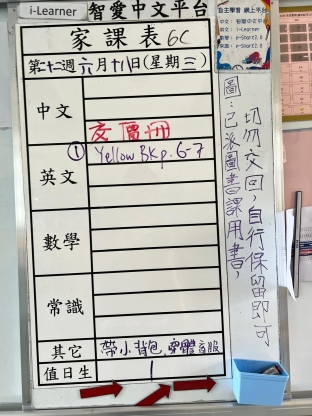 i-Learner 智愛中文平台
自主學習 網上平台
家課表 6C
第二十二週 六月十八日(星期三)
中文
交買冊
英文
① Yellow BK p. 6-7
數學
常識
其它
帶小背包, 穿體育服
值日生
1
圖:已派圖書課用書,
切勿交回,自行保留即可